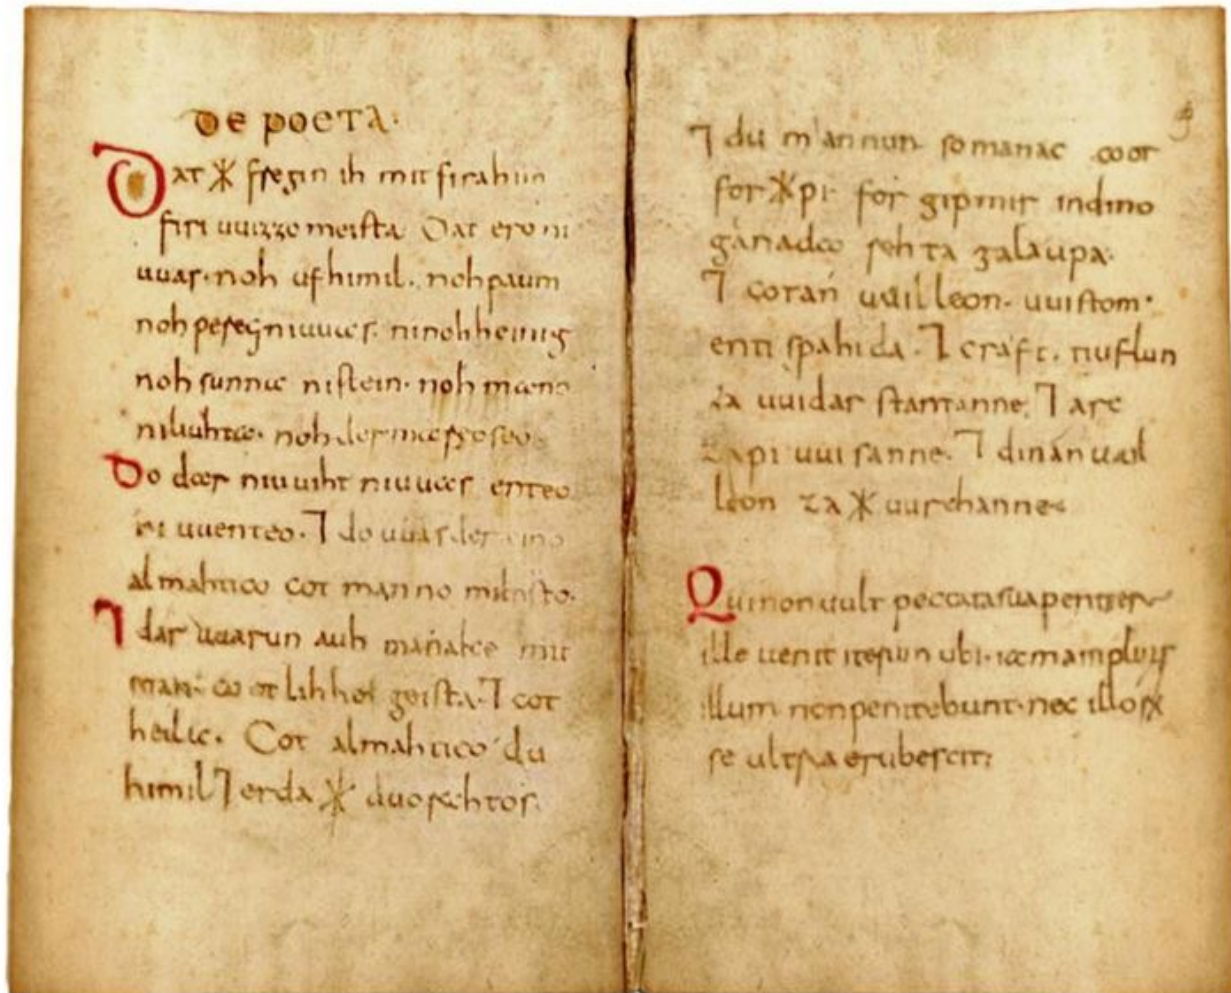 De POETA·
Dat * fregin ih mit firahim
firi uuizzo meista Dat ero ni
uuas· noh ufhimil· noh paum
noh pereg ni uuas· ninohheinig
noh sunna ni stein· noh mano
ni liuhta· noh der mareo seo
Do dar niuuiht niuuas enteo
ni uuenteo· ⁊ do uuas der eino
almahtico cot manno miltisto·
⁊ dar uuarun auh manake mit
man· cootlihhe geista· ⁊ cot
heilac· Cot almahtico du
himil ⁊ erda * uuorahtos·
⁊ du mannun so manac coot
for*pi· for gipmir indino
ganada rehta galaupa·
⁊ cotan uuilleon· uuistom·
enti spahida· ⁊ craft· tiuflun
za uuidar stantanne· ⁊ arc
zapi uuisanne· ⁊ dinan uuil
leon za * uurchanne·
Qui non uult peccata sua penitere
ille uenit iterum ubi· iam amplius
illum non penitebunt· nec illorꝝ
se ultra erubescit;